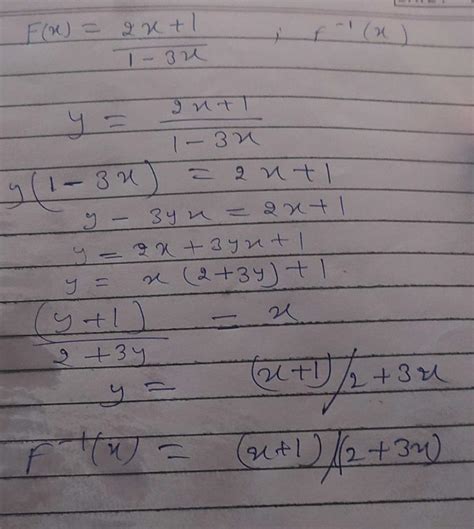 F(x) = 2x+1 / 1-3x ; f⁻¹(x)
y = 2x+1 / 1-3x
y(1-3x) = 2x+1
y - 3yx = 2x+1
y = 2x+3yx+1
y = x(2+3y)+1
(y+1) / 2+3y = x
y = (x+1)/2+3x
F⁻¹(x) = (x+1)/(2+3x)